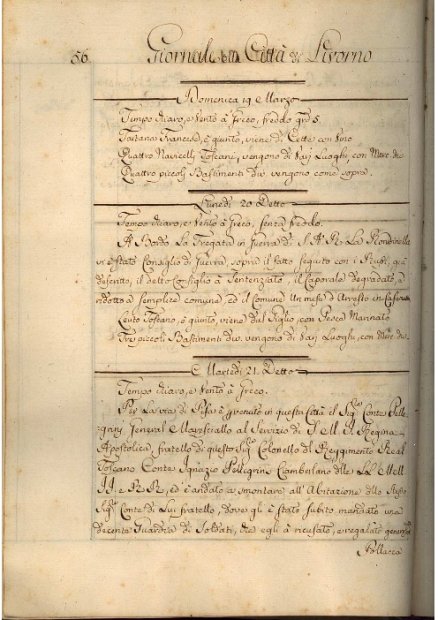 56. Giornale della Città di Livorno
Domenica 19 Marzo
Tempo chiaro, e Vento à Greco, freddo grã 5.
Tartana Francese, è giunto, viene di Cette con Vino
Quattro Navicelli Toscani, vengono di Varj Luoghi, con Merc. die
Quattro piccoli Bastimenti div. vengono come sopra.
Lunedi 20 Detto
Tempo chiaro, e Vento à Greco, senza freddo.
A Bordo La Fregata in Guerra di S. A. R. La Rondinella
vi è stato Consiglio di Guerra, sopra il fatto seguito con i Rusti, già
descritto, il detto Consiglio à Sentenziato, il Caporale degradato, e
ridotto à semplice comune, ed il Comune Un mese d'Arresto in
Leuto Toscano, è giunto, viene dal Giglio, con Pesce Marinato
Tre piccoli Bastimenti div. vengono di Varj Luoghi, con Merc. die
E Martedi 21. Detto
Tempo chiaro, e Vento à Greco.
Per La via di Pisa è pervenuto in questa Città il Sig.re Conte Pelle
grini General Maresciallo al Servizio di S. M. I. Regina
Apostolica, fratello di questo Sig.re Colonello del Reggimento Real
Toscano Conte Ignazio Pellegrini Ciamberlano delle LL. MM.
II. e RR., ed è andato a smontare all'Abitazione dello stesso
Sig.re Conte di Lui fratello, dove gli è stato subito mandato una
decente Guardia di Soldati, che egli à ricusato, e regalato
Pollacca